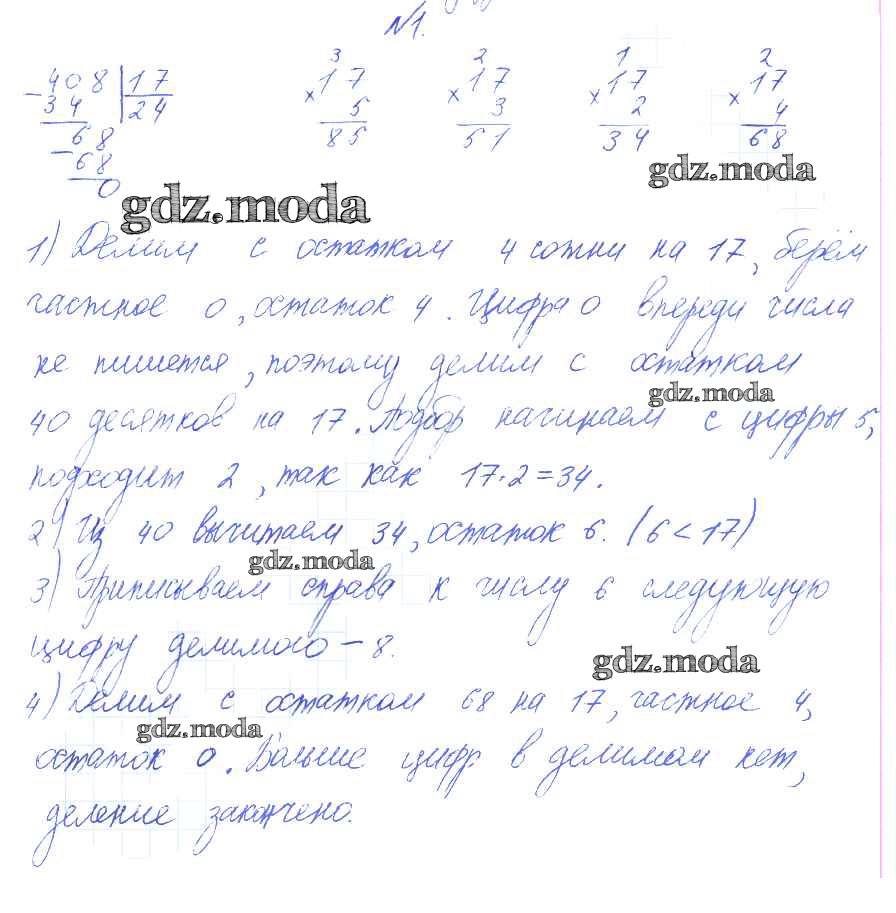 №1.
3 2 1 2
408 | 17 17 17 17 17
- 34 24 × 5 × 3 × 2 × 4
68 85 51 34 68
- 68
0
gdz.moda
gdz.moda
1) Делим с остатком 4 сотни на 17, берём
частное 0, остаток 4. Цифра 0 впереди числа
не пишется, поэтому делим с остатком
gdz.moda
40 десятков на 17. Подбор начинаем с цифры 5,
подходит 2, так как 17·2=34.
2) Из 40 вычитаем 34, остаток 6. (6<17)
gdz.moda
3) Приписываем справа к числу 6 следующую
цифру делимого – 8.
gdz.moda
4) Делим с остатком 68 на 17, частное 4,
gdz.moda
остаток 0. Больше цифр в делимом нет,
деление закончено.